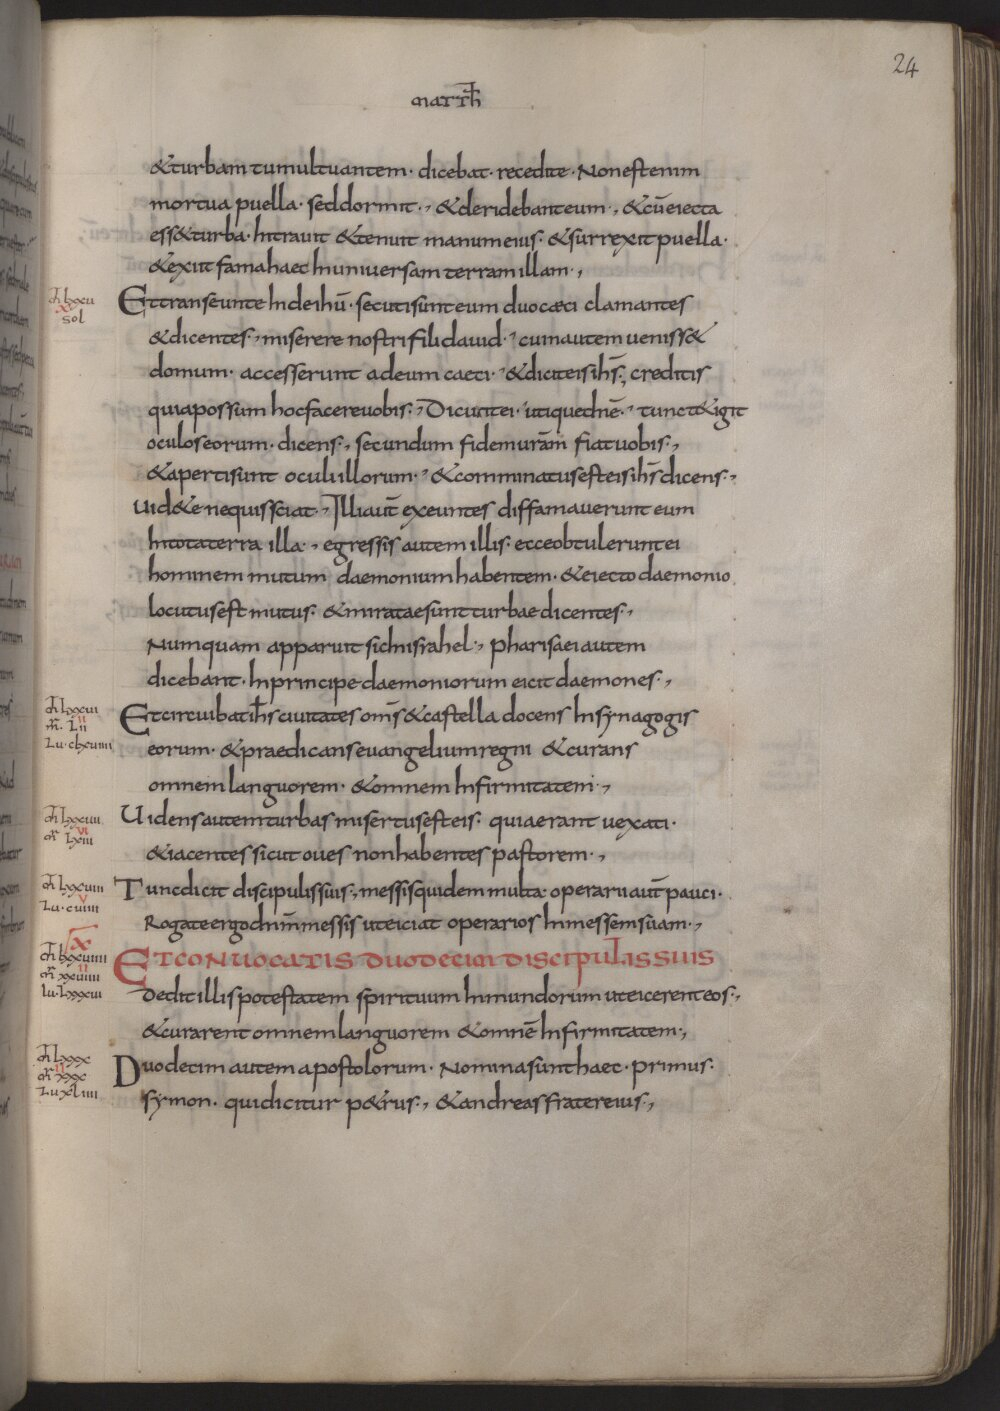 24
MATTH
&turbam tumultuantem· dicebat· recedite· Nonestenim
mortua puella· seddormit·, &deridebanteum·, &cūeiecta
ess&turba· Intrauit &tenuit manumeius· &surrexit puella·
&exiit famahaec Inuniuersam terram illam·,
m̄ lxxu
x
sol
Ettranseunte Indeihū· secutisunteum duocaeci clamantes
&dicentes·, miserere nostri fili dauid·, cumautem ueniss&
domum· accesserunt adeum caeci·, &diciteisihs̄·, creditis
quiapossum hocfacereuobis·, Dicuntei· utiquednē·, tunct&igit
oculoseorum· dicens·, secundum fidemur̄am fiatuobis·,
&apertisunt oculiillorum·, &comminatusesteisihs̄ dicens·,
uid&enequissciat·, Illiaut̄ exeuntes diffamauerunt eum
Intotaterra illa·, egressis autem illis· ecceobtuleruntei
hominem mutum daemoniumhabentem· &eiecto daemonio
locutusest mutus· &mirataesunt turbaedicentes·,
Numquam apparuit sicInisrahel·, pharisaeiautem
dicebant· Inprincipe daemoniorum eicit daemones·,
m̄ lxxui
m̄r· lii
Lu· clxuiiii
Etcircuibatihs̄ ciuitates om̄s &castella docens Insynagogis
eorum· &praedicanseuangeliumregni &curans
omnemlanguorem· &omnem Infirmitatem·,
m̄ lxxuii
ui
m̄r lxiii
Uidensautemturbasmisertusesteis· quiaerant uexati·
&iacentes sicut oues nonhabentes pastorem·,
m̄ lxxuiii
u
Lu· cuiiii
Tuncdicit discipulissuis·, messisquidemmulta· operariiaut̄ pauci·
Rogateergodnm̄messis uteiciat operarios Inmessemsuam·,
x
m̄ lxxuiiii
ii
m̄r xxuiiii
lu· lxxxuii
ETCONUOCATIS DUODECIM DISCIPULISSUIS
Deditillispotestatem spirituum Inmundorum uteicerenteos·,
&curarent omnemlanguorem &omnē Infirmitatem·,
m̄ lxxx
ii
m̄r xxx
Lu xliiii
Duodecim autem apostolorum· Nominasunthaec· primus·
symon· quidicitur p&rus·, &andreasfratereius·,